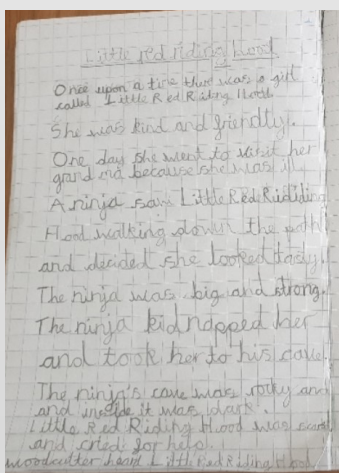 Little red riding hood
Once upon a time there was a girl
called Little Red Riding Hood
She was kind and friendly.
One day she went to visit her
grand ma because she was ill
A ninja saw Little Red Rididing
Hood walking down the path
and decided she looked tasty.
The ninja was big and strong.
The ninja kidnapped her
and took her to his cave.
The ninja's cave was rocky and
and inside it was dark.
Little Red Riding Hood was scared
and cried for help.
woodcutter heard Little Red Riding Hood